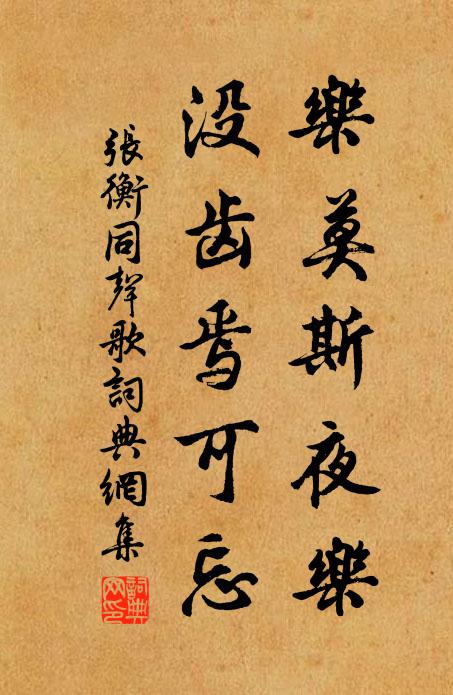 樂莫斯夜樂
没齿焉可忘
張衡同聲歌詞典網集
詞典網印